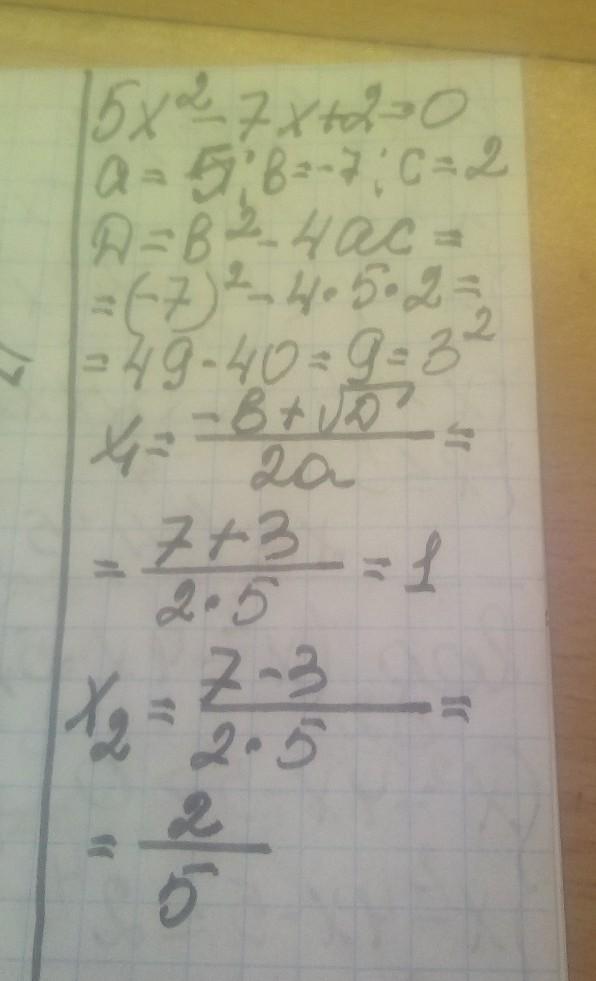 5x² - 7x + 2 = 0
a = 5; в = -7; c = 2
D = в² - 4ac =
= (-7)² - 4·5·2 =
= 49 - 40 = 9 = 3²
x₁ = (-в + √D) / 2a =
= (7 + 3) / (2·5) = 1
x₂ = (7 - 3) / (2·5) =
= 2/5